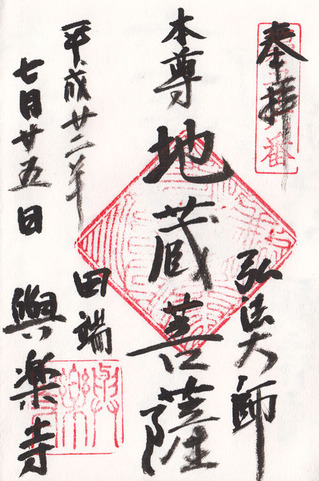 奉拝
弘法大師
本尊
地蔵菩薩
平成廿二年
七月廿五日
田端
興楽寺